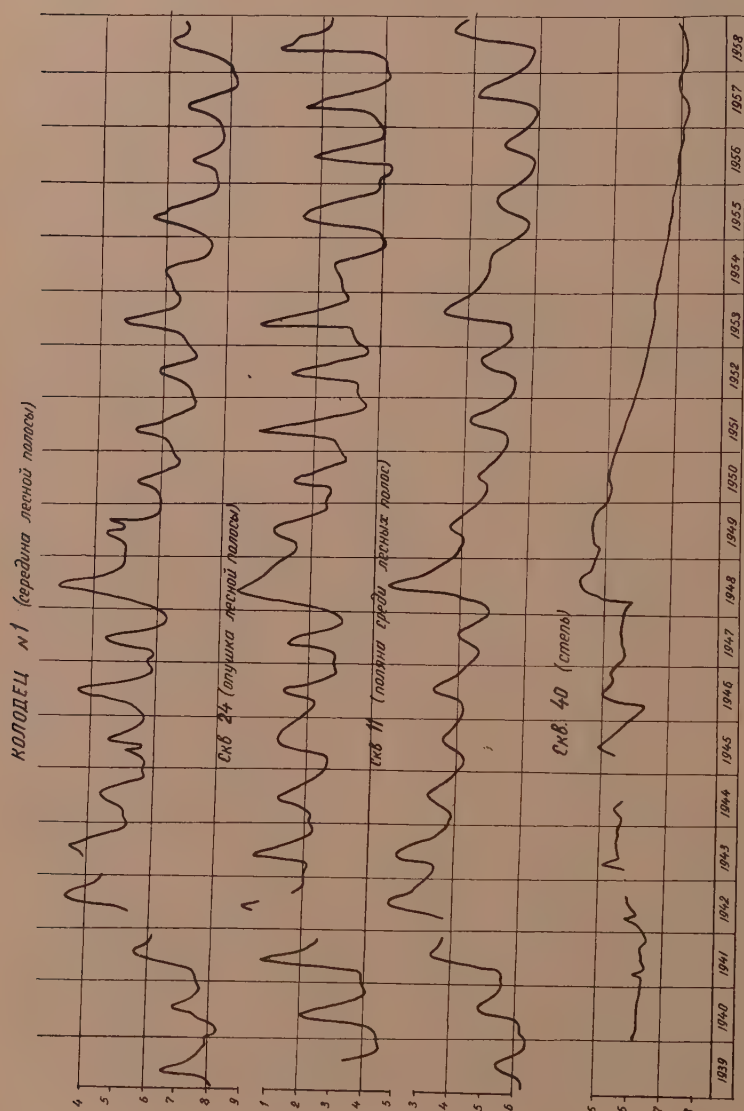 КОЛОДЕЦ №1 (середина лесной полосы)
4
5
6
7
8
9
Скв 24 (опушка лесной полосы)
1
2
3
4
5
Скв 11 (поляна среди лесных полос)
3
4
5
6
Скв. 40 (степь)
6
7
1939 1940 1941 1942 1943 1944 1945 1946 1947 1948 1949 1950 1951 1952 1953 1954 1955 1956 1957 1958